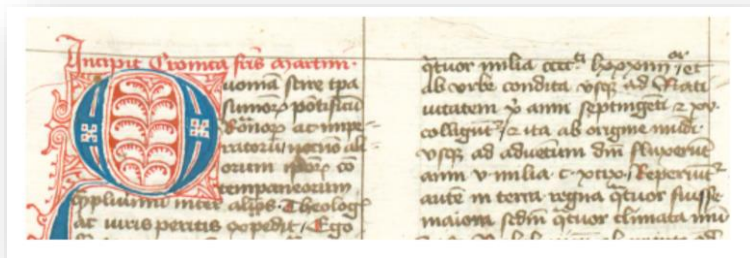 Incipit Cronica fr̄is Martini·
Quoniā scire tp̄a
sum̄oꝝ pōtificū
Romānoꝝ ac impe
ratorū necnō ali
orum ip̄oꝝ cō
temporaneorum
q̄plurimū inter alios Theologꝭ
ac iuris peritis expedit / Ego
q̄tuor milia cccc lxxxiiii or et
Ab vrbe condita vsqꝫ ad Nati
uitatem xp̄i anni septingēti ⁊ xv·
colligūt᷑ / ⁊ ita ab origine mūdi·
vsqꝫ ad aduentum dn̄i fluxerūt
anni v milia c· xcix· Reperiūt᷑
autē in terra regna q̄tuor fuisse
maiora scd̄m q̄tuor climata mū